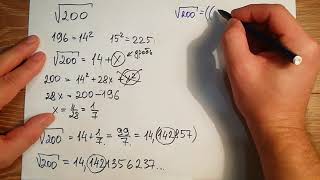 √200
196 = 14² 15² = 225
√200 = 14 + x дробь
200 = 14² + 28x + x²
28x = 200 - 196
x = 4/28 = 1/7
√200 = 14 + 1/7 = 99/7 = 14,(142857)
√200 = 14,1421356237...
√200 = ((